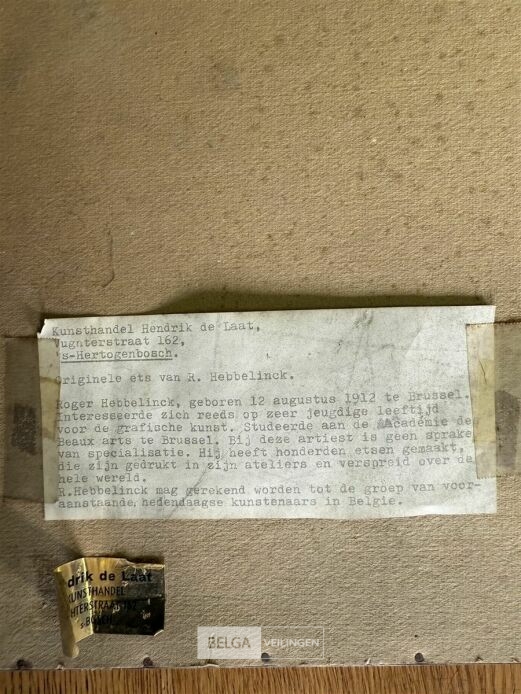 Kunsthandel Hendrik de Laat,
Vughterstraat 162,
's-Hertogenbosch.
Originele ets van R. Hebbelinck.
Roger Hebbelinck, geboren 12 augustus 1912 te Brussel.
Interesseerde zich reeds op zeer jeugdige leeftijd
voor de grafische kunst. Studeerde aan de Académie de
Beaux arts te Brussel. Bij deze artiest is geen sprake
van specialisatie. Hij heeft honderden etsen gemaakt,
die zijn gedrukt in zijn ateliers en verspreid over de
hele wereld.
R.Hebbelinck mag gerekend worden tot de groep van voor-
aanstaande, hedendaagse kunstenaars in Belgie.
drik de Laat
KUNSTHANDEL
HTERSTRAAT 162
BELGA VEILINGEN